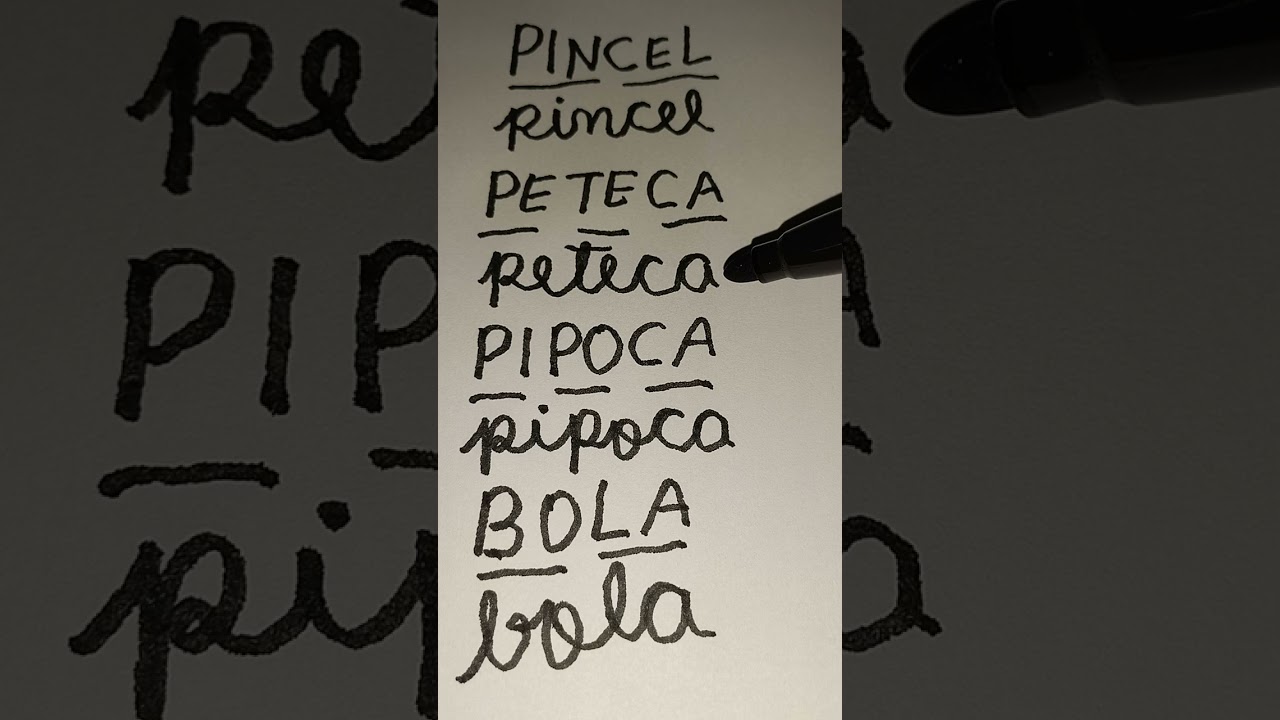 PINCEL
pincel
PETECA
peteca
PIPOCA
pipoca
BOLA
bola